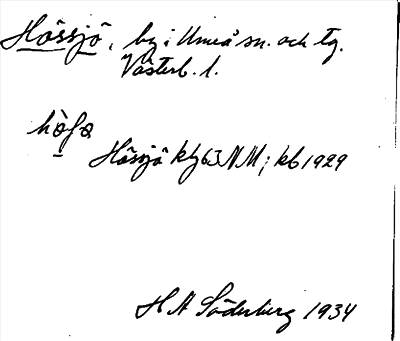 Hössjö, by i Umeå sn. och tg.
Västerb. l.
Hössjö ktj 63 NM; kb 1929
H A Söderberg 1934